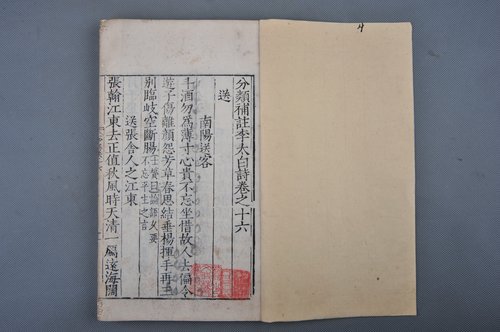 分類補註李太白詩卷之十六
送
南陽送客
斗酒勿為薄寸心貴不忘坐惜故人去偏令
遊子傷離顔怨芳草春思結垂楊揮手再三
別臨岐空斷腸士贇曰論語久要不忘平生之言
送張舍人之江東
張翰江東去正值秋風時天清一鴈遠海闊